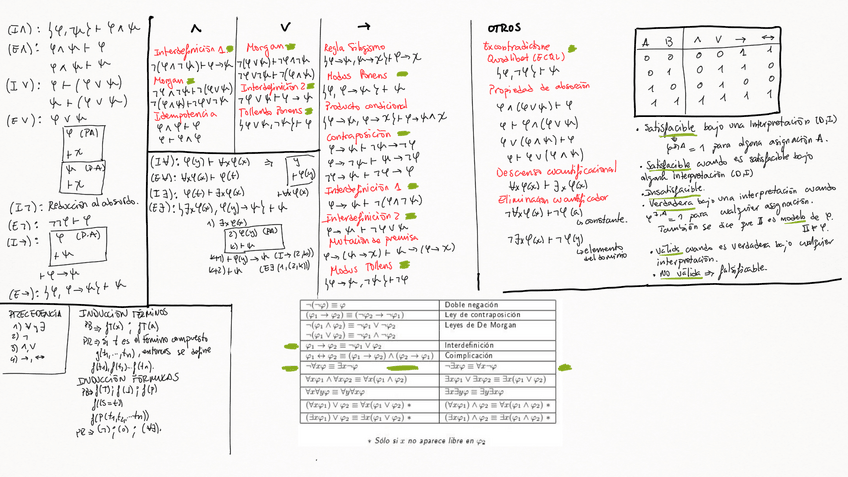 (I∧): {φ, ψ} ⊢ φ ∧ ψ
(E∧): φ ∧ ψ ⊢ φ
φ ∧ ψ ⊢ ψ
(I∨): φ ⊢ (φ ∨ ψ)
ψ ⊢ (φ ∨ ψ)
(E∨): φ ∨ ψ
φ (PA)
⊢ χ
ψ (P.A)
⊢ χ
(I¬): Reducción al absurdo.
(E¬): ¬¬φ ⊢ φ
(I→): φ (P.A)
⊢ ψ
⊢ φ → ψ
(E→): {φ, φ→ψ} ⊢ ψ
∧
Interdefinición 1
¬(φ∧¬ψ) ⊢ φ→ψ
Morgan
¬φ∧¬ψ ⊢ ¬(φ∨ψ)
¬(φ∧ψ) ⊢ ¬φ∨¬ψ
Idempotencia
φ∧φ ⊢ φ
φ ⊢ φ∧φ
∨
Morgan
¬(φ∨ψ) ⊢ ¬φ∧¬ψ
¬φ∨¬ψ ⊢ ¬(φ∧ψ)
Interdefinición 2
¬φ∨ψ ⊢ φ→ψ
Tollendo Ponens
{φ∨ψ, ¬ψ} ⊢ φ
→
Regla Silogismo
{φ→ψ, ψ→χ} ⊢ φ→χ
Modus Ponens
{φ, φ→ψ} ⊢ ψ
Producto condicional
{φ→ψ, φ→χ} ⊢ φ→ψ∧χ
Contraposición
φ→ψ ⊢ ¬ψ→¬φ
φ→¬ψ ⊢ ψ→¬φ
¬φ→¬ψ ⊢ ψ→φ
Interdefinición 1
φ→ψ ⊢ ¬(φ∧¬ψ)
Interdefinición 2
φ→ψ ⊢ ¬φ∨ψ
Mutación de premisa
φ→(ψ→χ) ⊢ ψ→(φ→χ)
Modus Tollens
{φ→ψ, ¬ψ} ⊢ ¬φ
(I∀): φ(y) ⊢ ∀xφ(x) ⇒ y
⊢ φ(y)
⊢ ∀xφ(x)
(E∀): ∀xφ(x) ⊢ φ(t)
(I∃): φ(t) ⊢ ∃xφ(x)
(E∃): {∃xφ(x), φ(y)→ψ} ⊢ ψ
1) ∃xφ(x)
2) φ(y) (PA)
k) ⊢ ψ
k+1) ⊢ φ(y)→ψ (I→(2,k))
k+2) ⊢ ψ (E∃(1,(2,k)))
OTROS
Excontradictione
Quodlibet (ECQL)
{φ, ¬φ} ⊢ ψ
Propiedad de absorción
φ∧(φ∨ψ) ⊢ φ
φ ⊢ φ∧(φ∨ψ)
φ∨(φ∧ψ) ⊢ φ
φ ⊢ φ∨(φ∧ψ)
Descenso cuantificacional
∀xφ(x) ⊢ ∃xφ(x)
Eliminacion cuantificador
¬∀xφ(x) ⊢ ¬φ(a)
a constante.
¬∃xφ(x) ⊢ ¬φ(y)
elemento
del dominio
A B ∧ ∨ → ↔
0 0 0 0 1 1
0 1 0 1 1 0
1 0 0 1 0 0
1 1 1 1 1 1
• Satisfacible bajo una Interpretación (D,I)
= 1 para alguna asignación A.
• Satisfacible cuando es satisfacible bajo
alguna interpretación (D,I)
• Insatisfacible.
• Verdadera bajo una interpretación cuando
= 1 para cualquier asignación.
También se dice que II es modelo de φ.
II ⊨ φ.
• Válida cuando es verdadera bajo cualquier
interpretación.
• No válida ⇒ falsificable.
PRECEDENCIA
1) ∀, ∃
2) ¬
3) ∧, ∨
4) →, ↔
INDUCCIÓN TÉRMINOS
PB ⇒ f(x) ; f(a)
PR ⇒ si t es el término compuesto
g(t₁,...,tn), entonces se define
f(t₁), f(t₂)...f(tn).
INDUCCIÓN FÓRMULAS
PB ⇒ f(⊤) ; f(⊥) ; f(p)
f(s=t)
f(P(t₁,t₂,...tn))
PR ⇒ (¬) ; (o) ; (∀∃).
¬(¬φ) ≡ φ Doble negación
(φ₁ → φ₂) ≡ (¬φ₂ → ¬φ₁) Ley de contraposición
¬(φ₁ ∧ φ₂) ≡ ¬φ₁ ∨ ¬φ₂ Leyes de De Morgan
¬(φ₁ ∨ φ₂) ≡ ¬φ₁ ∧ ¬φ₂
φ₁ → φ₂ ≡ ¬φ₁ ∨ φ₂ Interdefinición
φ₁ ↔ φ₂ ≡ (φ₁ → φ₂) ∧ (φ₂ → φ₁) Coimplicación
¬∀xφ ≡ ∃x¬φ ¬∃xφ ≡ ∀x¬φ
∀xφ₁ ∧ ∀xφ₂ ≡ ∀x(φ₁ ∧ φ₂) ∃xφ₁ ∨ ∃xφ₂ ≡ ∃x(φ₁ ∨ φ₂)
∀x∀yφ ≡ ∀y∀xφ ∃x∃yφ ≡ ∃y∃xφ
(∀xφ₁) ∨ φ₂ ≡ ∀x(φ₁ ∨ φ₂) * (∀xφ₁) ∧ φ₂ ≡ ∀x(φ₁ ∧ φ₂) *
(∃xφ₁) ∨ φ₂ ≡ ∃x(φ₁ ∨ φ₂) * (∃xφ₁) ∧ φ₂ ≡ ∃x(φ₁ ∧ φ₂) *
* Sólo si x no aparece libre en φ₂